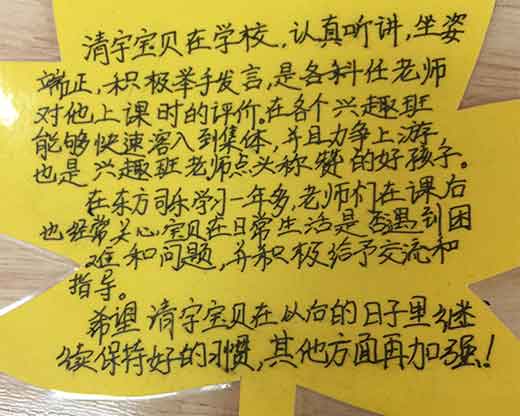 清宇宝贝在学校,认真听讲,坐姿
端正,积极举手发言,是各科任老师
对他上课时的评价。在各个兴趣班
能够快速溶入到集体,并且力争上游
也是兴趣班老师点头称赞的好孩子。
在东方司乐学习一年多,老师们在课后
也经常关心宝贝在日常生活是否遇到困
难和问题,并积极给予交流和
指导。
希望清宇宝贝在以后的日子里继
续保持好的习惯,其他方面再加强!